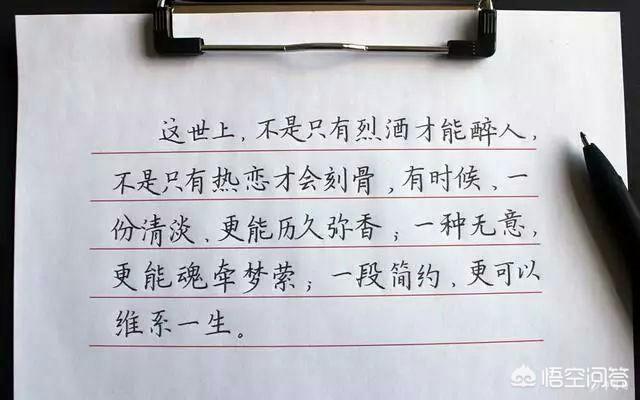 这世上，不是只有烈酒才能醉人，
不是只有热恋才会刻骨，有时候、一
份清淡、更能历久弥香；一种无意，
更能魂牵梦萦；一段简约、更可以
维系一生。
悟空问答